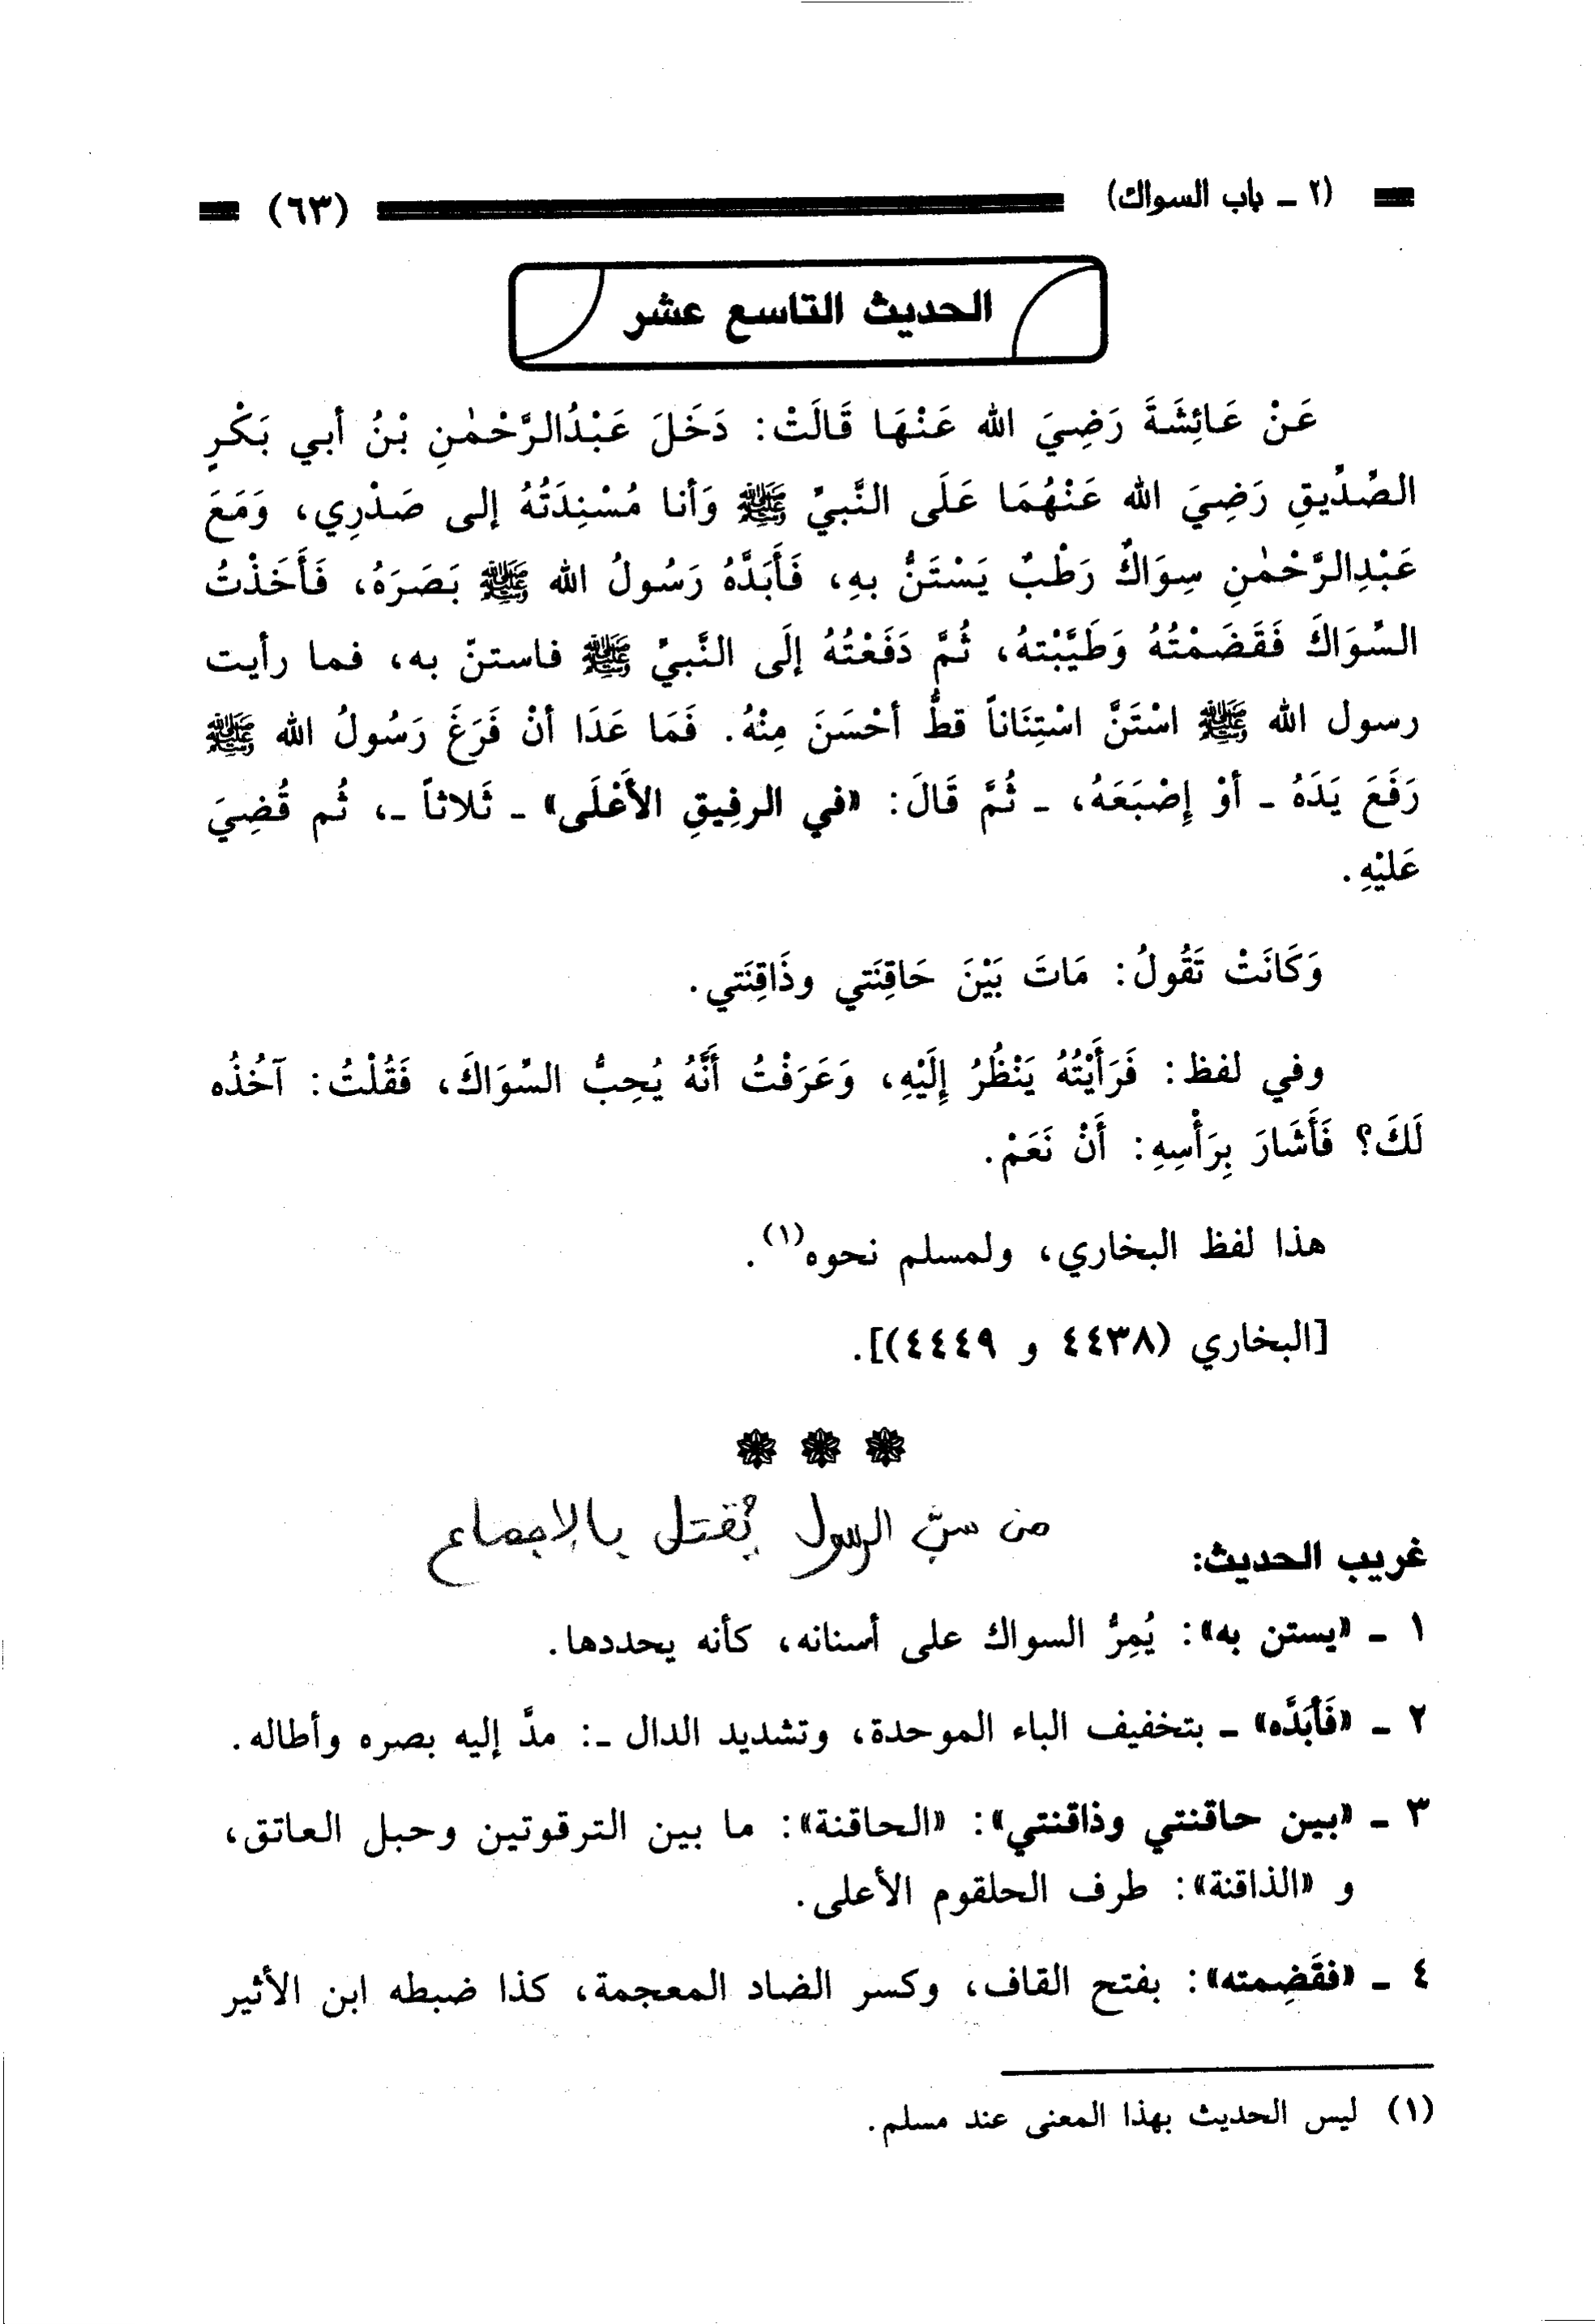 (٢ ـ باب السواك)
(٦٣)
الحديث التاسع عشر
عَنْ عَائِشَةَ رَضِيَ الله عَنْهَا قَالَتْ: دَخَلَ عَبْدُالرَّحْمٰنِ بْنُ أبي بَكْرٍ
الصِّدِّيقِ رَضِيَ الله عَنْهُمَا عَلَى النَّبيِّ ﷺ وَأنا مُسْنِدَتُهُ إلى صَدْرِي، وَمَعَ
عَبْدِالرَّحْمٰنِ سِوَاكٌ رَطْبٌ يَسْتَنُّ بهِ، فَأَبَدَّهُ رَسُولُ الله ﷺ بَصَرَهُ، فَأَخَذْتُ
السِّوَاكَ فَقَضَمْتُهُ وَطَيَّبْتهُ، ثُمَّ دَفَعْتُهُ إلَى النَّبيِّ ﷺ فاستنّ به، فما رأيت
رسول الله ﷺ اسْتَنَّ اسْتِنَاناً قطُّ أحْسَنَ مِنْهُ. فَمَا عَدَا أنْ فَرَغَ رَسُولُ الله ﷺ
رَفَعَ يَدَهُ ـ أوْ إِصْبَعَهُ، ـ ثُمَّ قَالَ: «في الرفِيقِ الأَعْلَى» ـ ثَلاثاً ـ، ثُم قُضِيَ
عَليْهِ.
وَكَانَتْ تَقُولُ: مَاتَ بَيْنَ حَاقِنَتي وذَاقِنَتي.
وفي لفظ: فَرَأَيْتُهُ يَنْظُرُ إِلَيْهِ، وَعَرَفْتُ أَنَّهُ يُحِبُّ السِّوَاكَ، فَقُلْتُ: آخُذُه
لَكَ؟ فَأَشَارَ بِرَأْسِهِ: أَنْ نَعَمْ.
هذا لفظ البخاري، ولمسلم نحوه(١).
[البخاري (٤٤٣٨ و ٤٤٤٩)].
من سبَّ الرسول يُقتل بالإجماع
غريب الحديث:
١ ـ «يستن به»: يُمِرُّ السواك على أسنانه، كأنه يحددها.
٢ ـ «فَأَبَدَّه» ـ بتخفيف الباء الموحدة، وتشديد الدال ـ: مدَّ إليه بصره وأطاله.
٣ ـ «بين حاقنتي وذاقنتي»: «الحاقنة»: ما بين الترقوتين وحبل العاتق،
و «الذاقنة»: طرف الحلقوم الأعلى.
٤ ـ «فقَضِمته»: بفتح القاف، وكسر الضاد المعجمة، كذا ضبطه ابن الأثير
(١) ليس الحديث بهذا المعنى عند مسلم.